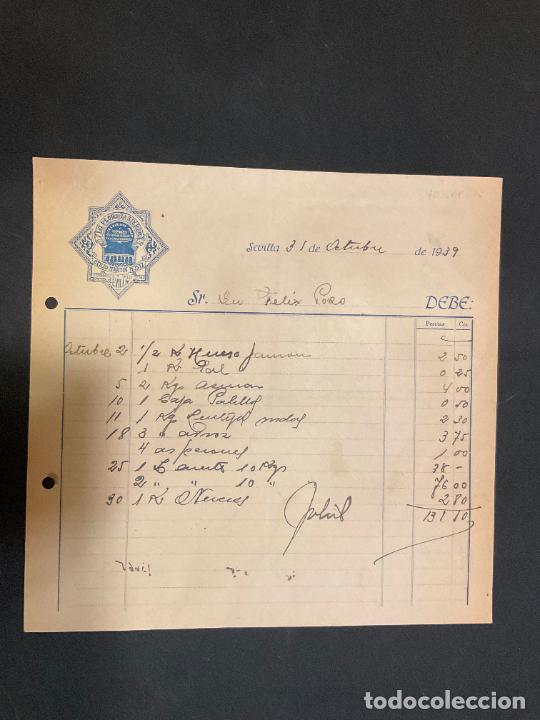 SEVILLA
Sevilla 31 de Octubre de 1939
Sr. Dn Felix Pozo DEBE:
Pesetas Cts.
Octubre 2 1/2 K Hueso Jamon 2 50
1 K Sal 0 25
5 2 Kgs azucar 4 00
10 1 Caja Palillos 0 50
11 1 Kg Lentejas 2 30
18 3 " arroz 3 75
4 1 00
25 1 L aceite 10 Kgs 38 -
2 " " 10 " 76 00
30 1 K 2 80
131 10
todocoleccion
todocoleccion.net